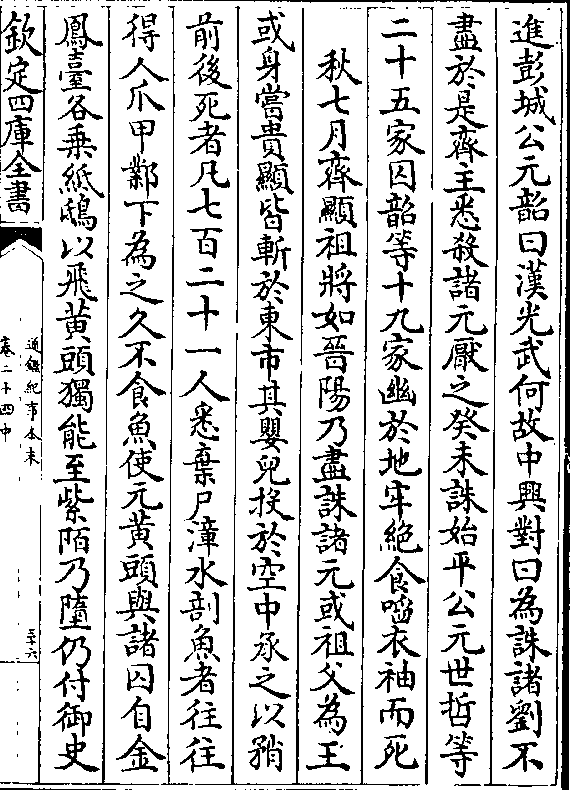 進彭城公元韶曰漢光武何故中興對曰為誅諸劉不
盡於是齊王悉殺諸元厭之癸未誅始平公元世哲等
二十五家囚韶等十九家幽於地牢絶食㗖衣袖而死
秋七月齊顯祖將如晉陽乃盡誅諸元或祖父為王
或身嘗貴顯皆斬於東市其嬰兒投於空中承之以矟
前後死者凡七百二十一人悉棄尸漳水剖魚者往往
得人爪甲鄴下為之久不食魚使元黄頭與諸囚自金
鳳臺各乗紙鴟以飛黄頭獨能至紫陌乃墮仍付御史
欽定四庫全書
通鑑紀事本末
卷二十四中
三十六